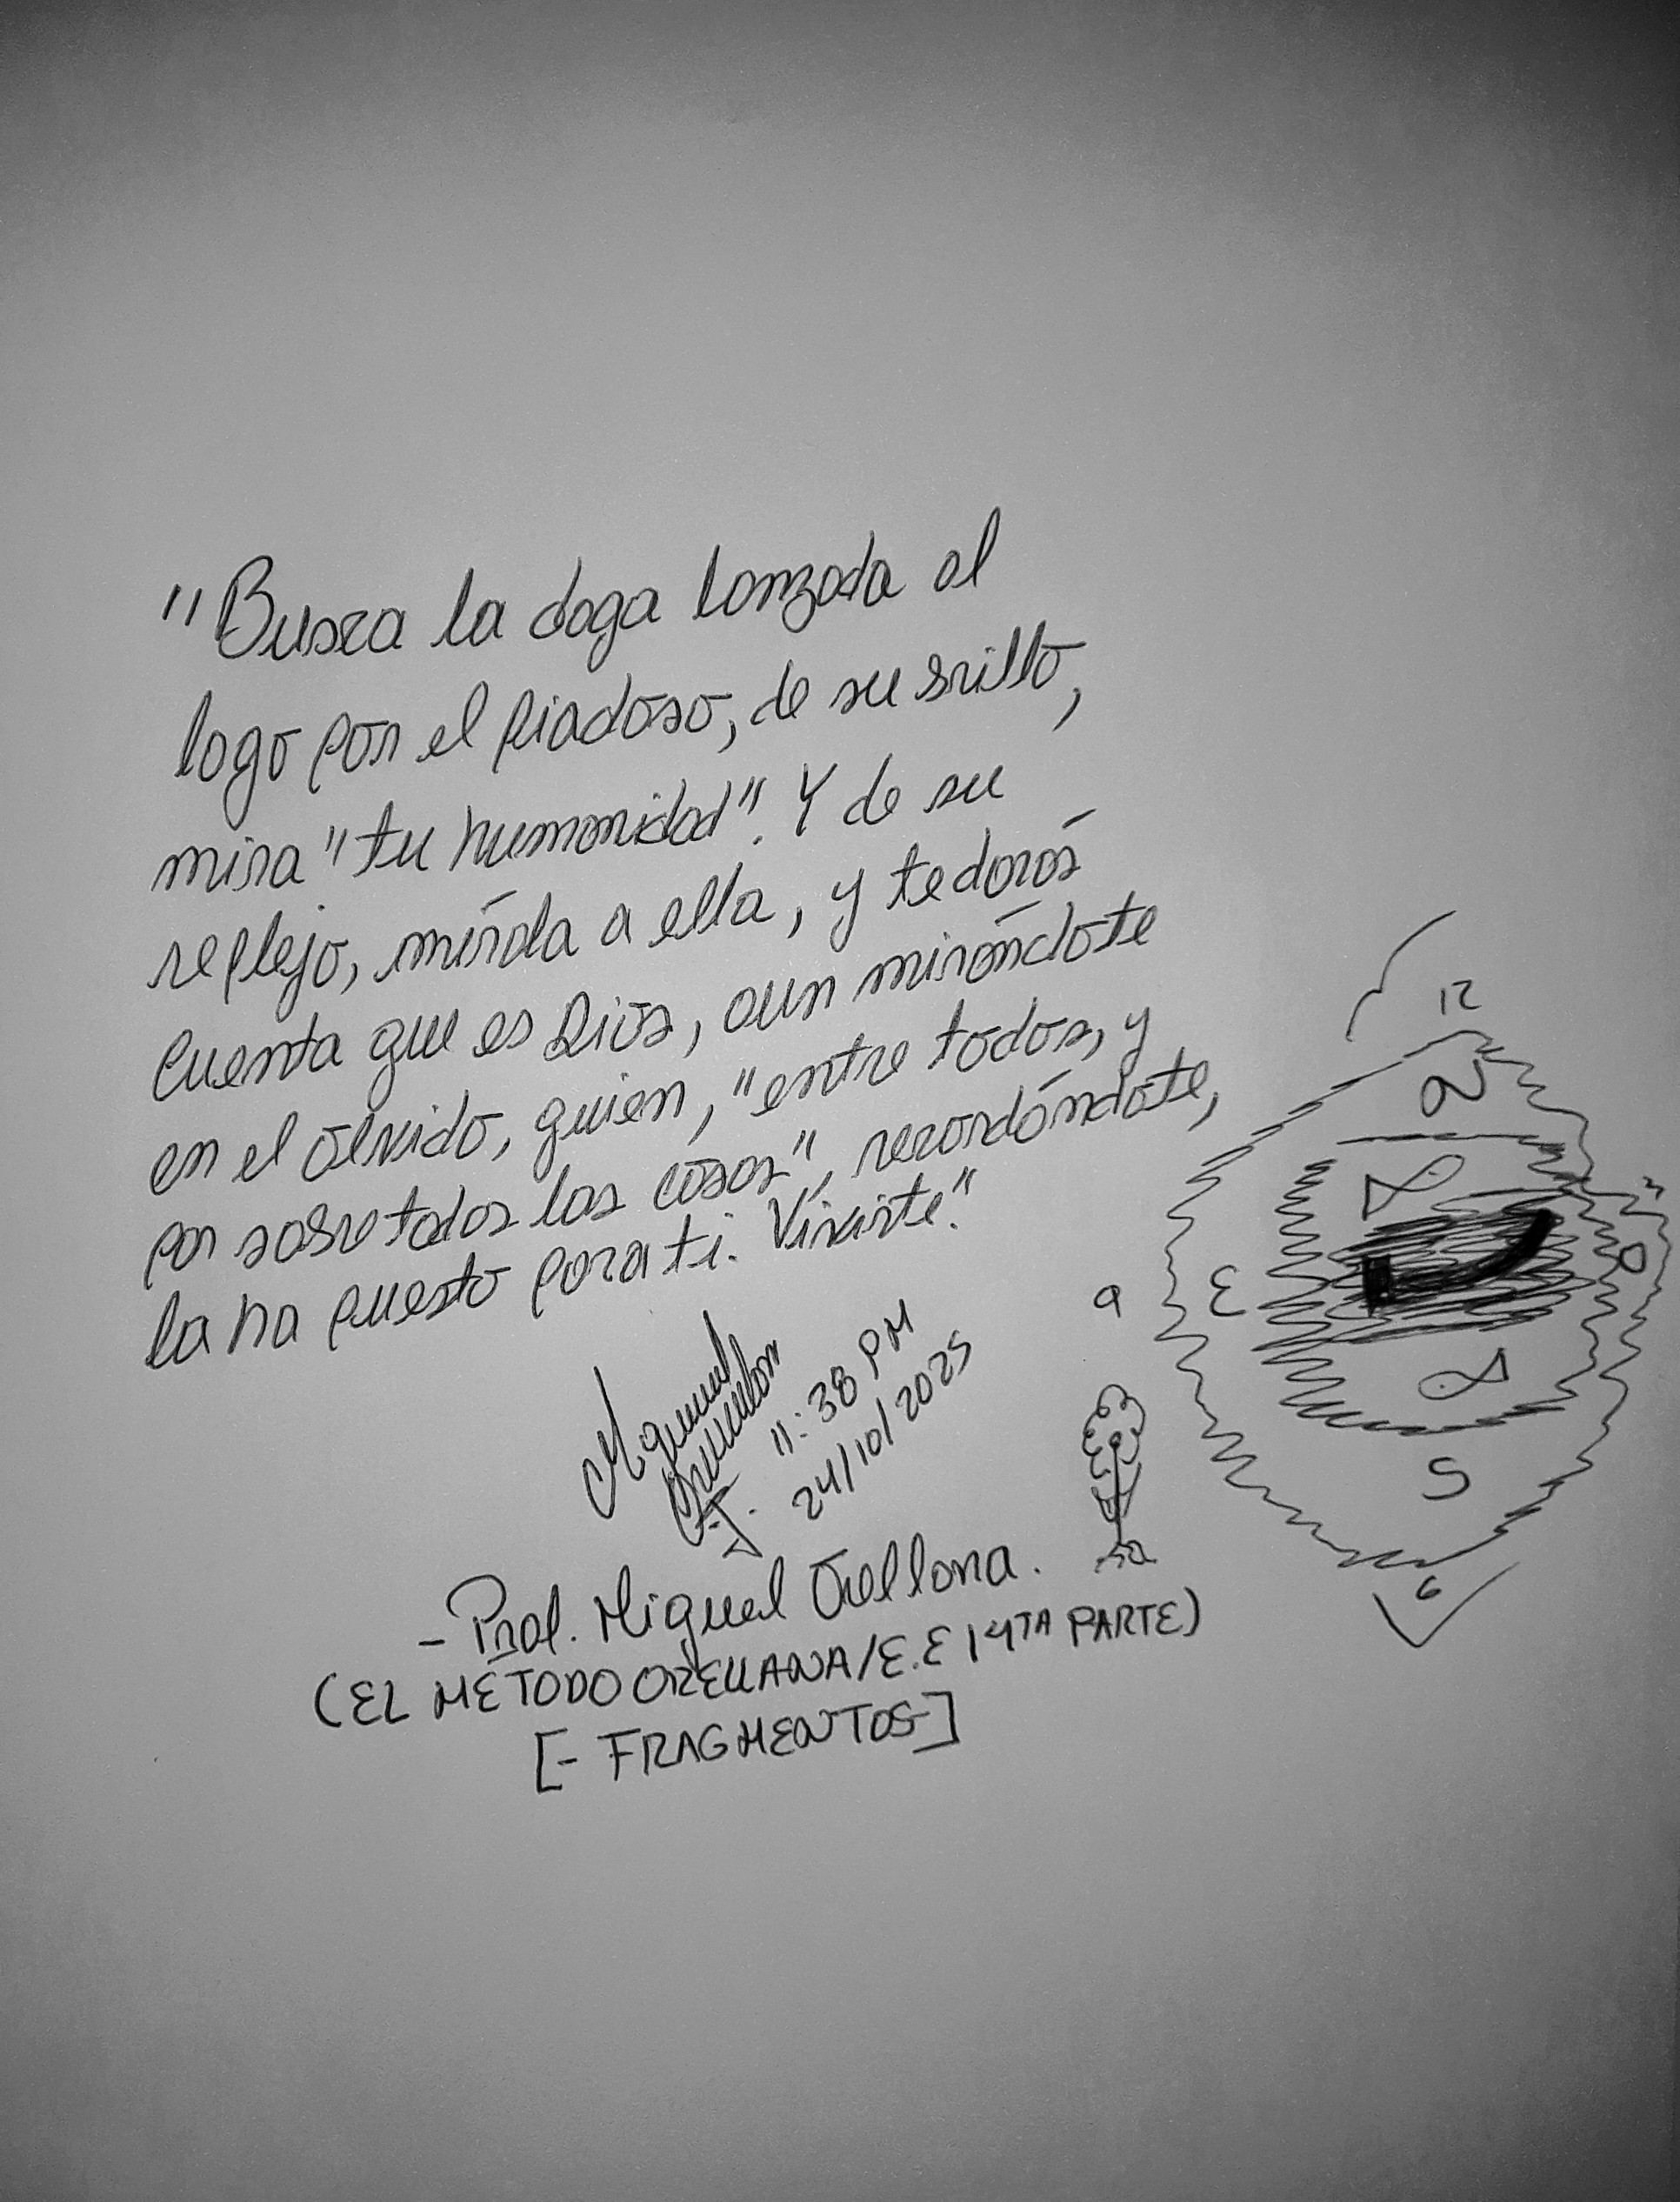 "Busca la daga lanzada al
lago por el piadoso, de su brillo,
mira "tu humanidad". Y de su
reflejo, mírala a ella, y te darás
cuenta que es Dios, aun mirándote
en el olvido, quien, "entre todos, y
por sobre todas las cosas", recordándote,
la ha puesto para ti. Vívirte."
11:38 PM
24/10/2025
- Prof. Miguel Orellana.
(EL MÉTODO ORELLANA/E.E 14TA PARTE)
[- FRAGMENTOS-]
12
N
3
O
E
9
S
6